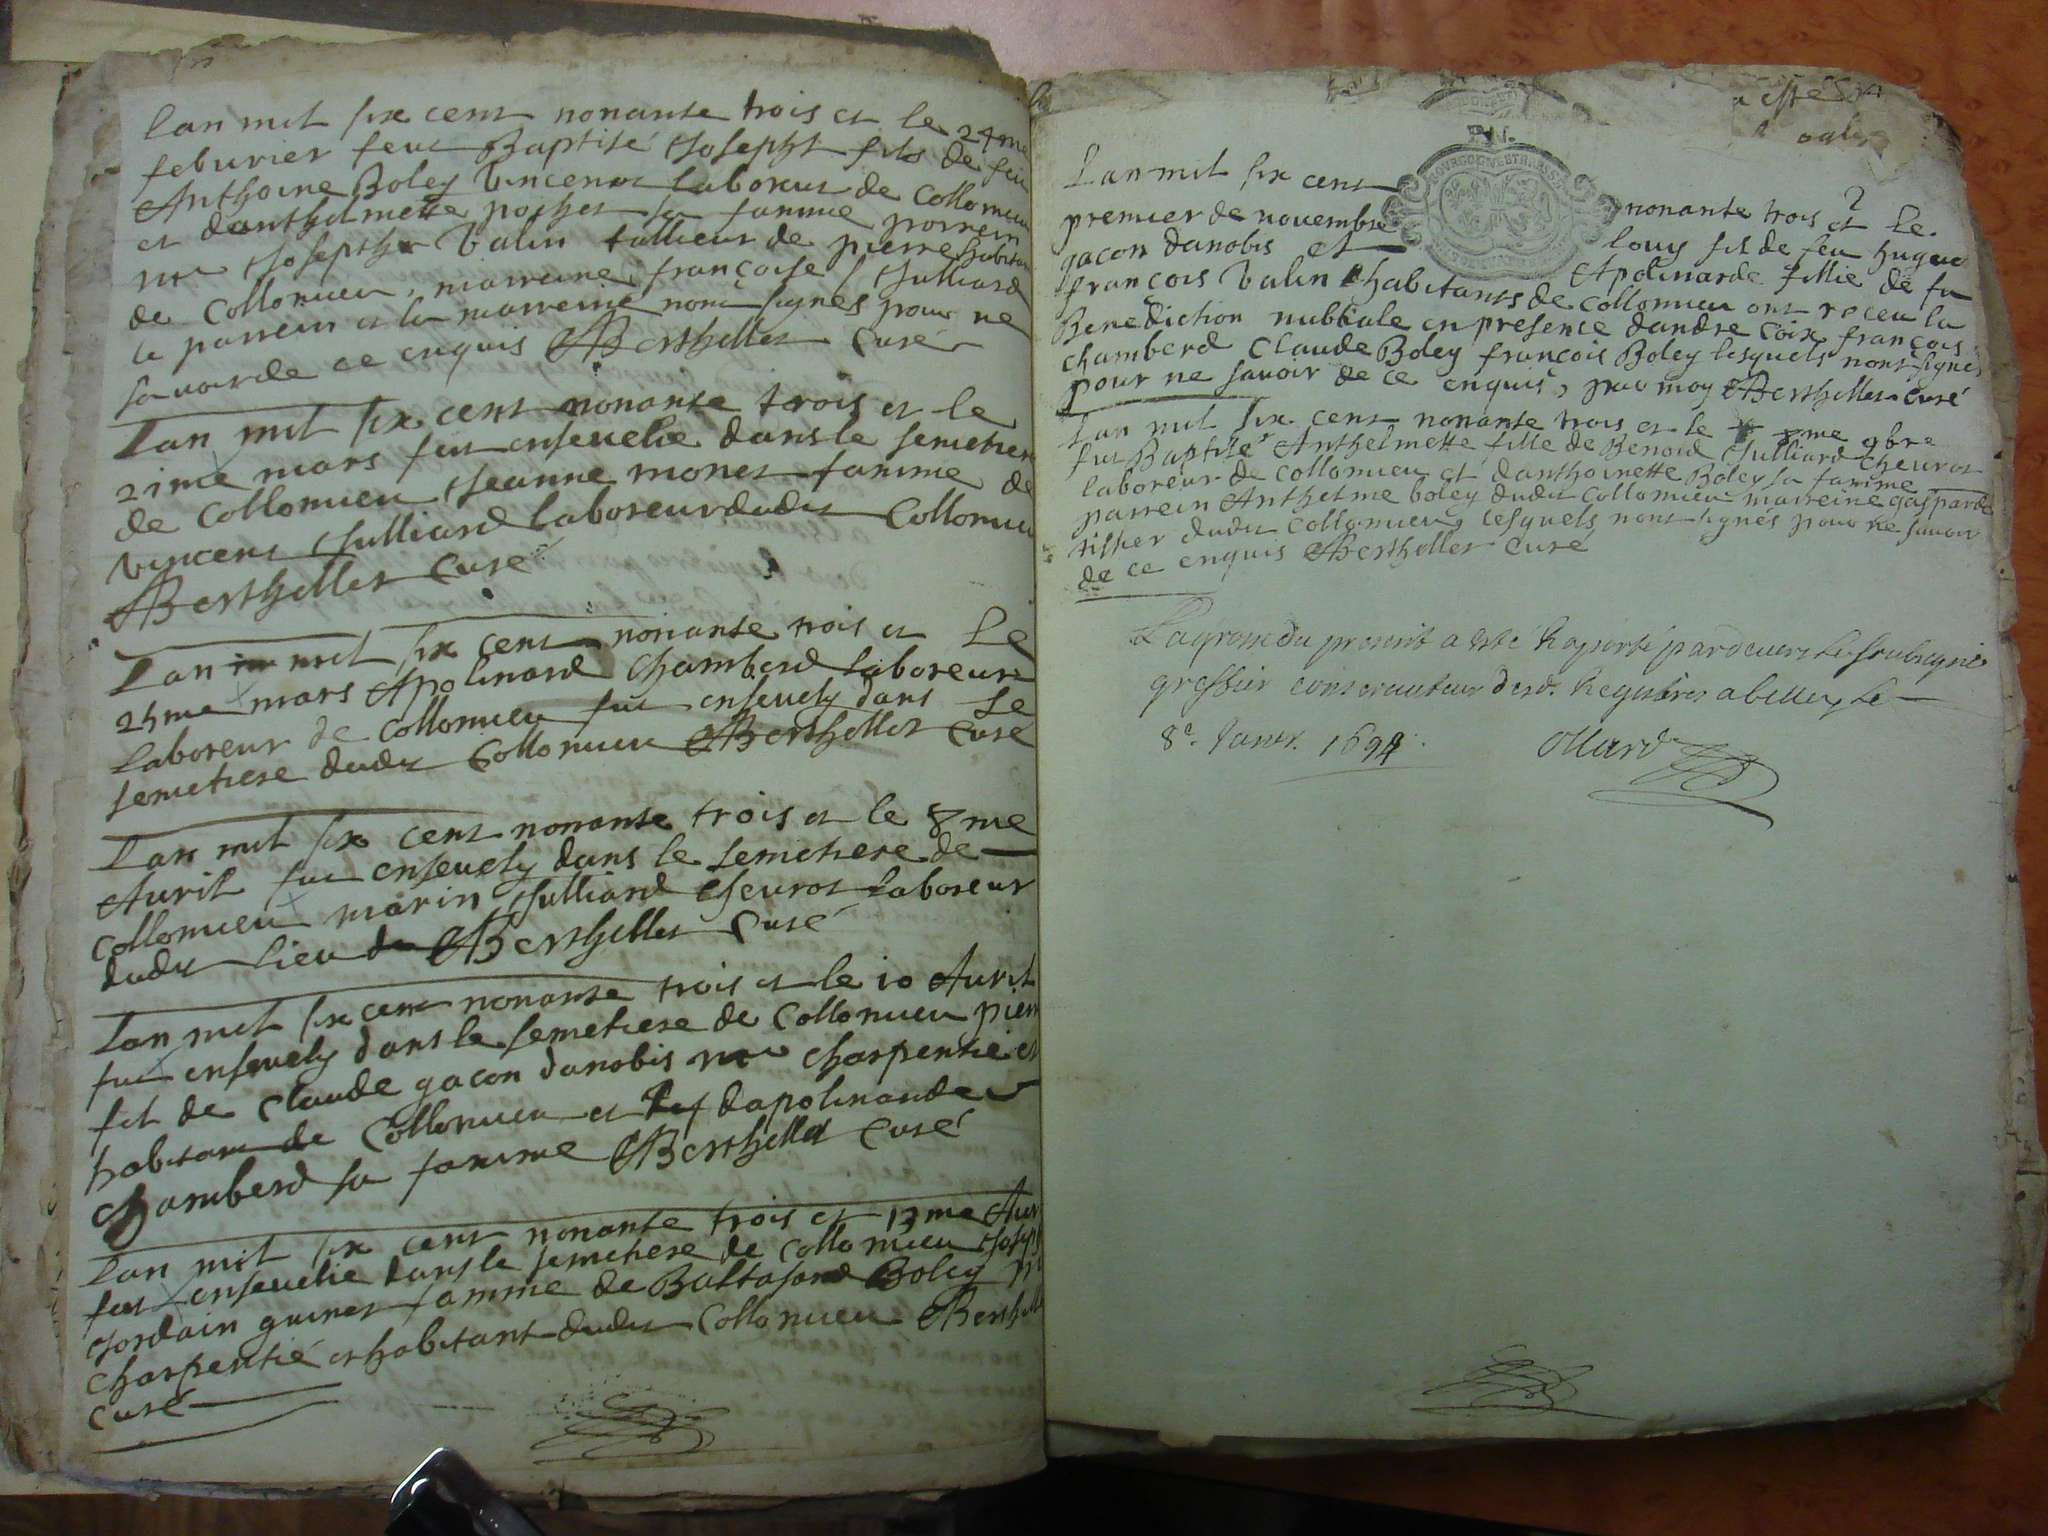 Lan mil six cent nonante trois et le 24me
feburier feut Baptisé Joseph fils de feu
Anthoine Boley Vincent laboreur de Collomieu
et danthelmette pochet sa famme parrein
me Joseph Valin tallieur de pierre habitant
de Collomieu, marreine françoise Julliard
le parrein et la marreine nont signés pour ne
savoir de ce enquis ABerthellet Curé
Lan mil six cent nonante trois et le
21me mars fut ensevelie dans le semetiere
de Collomieu Jeanne monet famme de
Vincent Julliard laboreur dudit Collomieu
ABerthellet Curé
Lan mil six cent nonante trois et le
25me mars Apolinard Chamberd laboreur
laboreur de Collomieu fut ensevely dans le
semetiere dudit Collomieu ABerthellet Curé
Lan mil six cent nonante trois et le 8me
Avril fut ensevely dans le semetiere de
Collomieu marin Julliard Chevrot laboreur
dudit lieu ABerthellet Curé
Lan mil six cent nonante trois et le 10 Avril
fut ensevely dans le semetiere de Collomieu pierre
fil de Claude gacon danobis me charpentié et
habitant de Collomieu et dapolinarde
Chamberd sa famme ABerthellet Curé
Lan mil six cent nonante trois et 13me Avril
fut ensevelie dans le semetiere de Collomieu
Jordain guinet famme de Baltasard Boley me
charpentié et habitant dudit Collomieu ABerthellet
Curé
BOURGOGNE ET BRESSE
2
Lan mil six cent nonante trois et le
premier de novembre louy fil de feu hugue
gacon danobis et Apolinarde fillie de fu
francois Valin habitants de Collomieu ont receu la
Benediction nubtiale en presence dandre Coix françois
chamberd Claude Boley francois Boley lesquels nont signés
pour ne savoir de ce enquis, par moy ABerthellet Curé
Lan mil six cent nonante trois et le me 9bre
fut Baptisé Anthelmette fille de Benoid Julliard Chevrot
laboreur de Collomieu et danthoinette Boley sa famme
parrein Anthelme boley dudit Collomieu marreine gasparde
tissier dudit Collomieu, lesquels nont signés pour ne savoir
de ce enquis ABerthellet Curé
La grosse du present a esté Raporté pardevers le soubsigné
greffier conservateur desd. Registres a belley le
8e. Janvr. 1694. Ollard